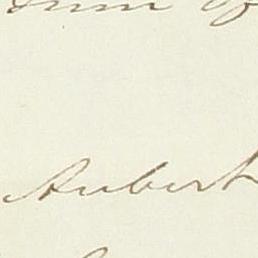 sum of
Aubert